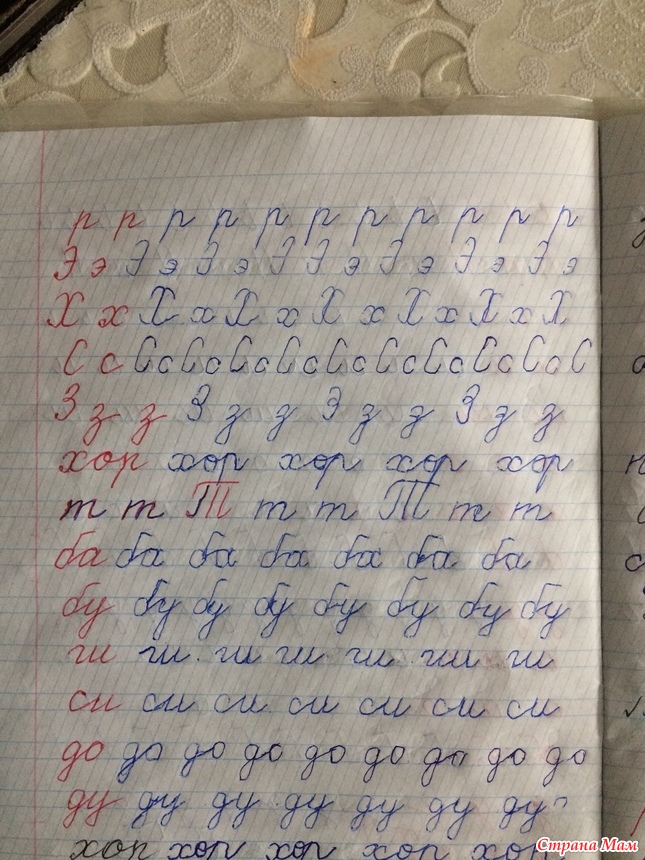 р р р р р р р р р р р
Э э Э э Э э Э Э э Э э Э э Э э
Х х Х х Х х Х х Х х Х х Х
С с С с С с С с С с С с С с С с С с С с С
З з з З з д Э з д З з д
хор хор хор хор хор
т т Т т т Т т т
ба ба ба ба ба ба ба
бу бу бу бу бу бу бу бу
ги ги ги ги ги ги ги
си си си си си си си
до до до до до до до до до
ду ду ду ду ду ду ду
хор хор хор хор хор
Страна Мам